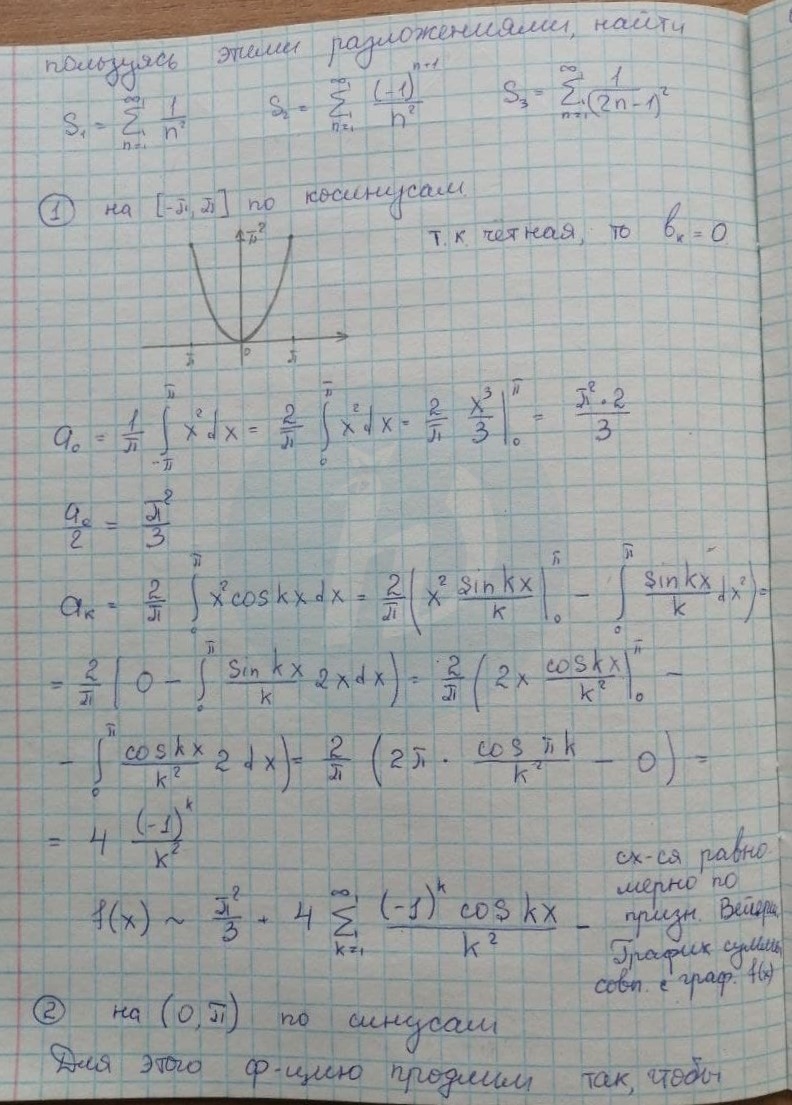 пользуясь этими разложениями, найти
S₁ = ∑_{n=1}^{∞} 1/n² S₂ = ∑_{n=1}^{∞} (-1)^{n+1}/n² S₃ = ∑_{n=1}^{∞} 1/(2n-1)²
① на [-π, π] по косинусам.
π²
т.к. чётная, то bₖ = 0
π 0 π
a₀ = 1/π ∫_{-π}^{π} x² dx = 2/π ∫_0^π x² dx = 2/π x³/3 |_0^π = π²·2/3
a₀/2 = π²/3
aₖ = 2/π ∫_0^π x² cos kx dx = 2/π (x² sin kx/k |_0^π − ∫_0^π sin kx/k dx²) =
= 2/π (0 − ∫_0^π sin kx/k 2x dx) = 2/π (2x cos kx/k² |_0^π −
− ∫_0^π cos kx/k² 2 dx) = 2/π (2π · cos πk/k² − 0) =
= 4 (-1)^k/k²
f(x) ~ π²/3 + 4 ∑_{k=1}^{∞} (-1)^k cos kx/k² −
сх-ся равно
мерно по
призн. Вейерш.
График суммы
совп. с граф. f(x)
② на (0, π) по синусам
Для этого ф-цию продлим так, чтобы